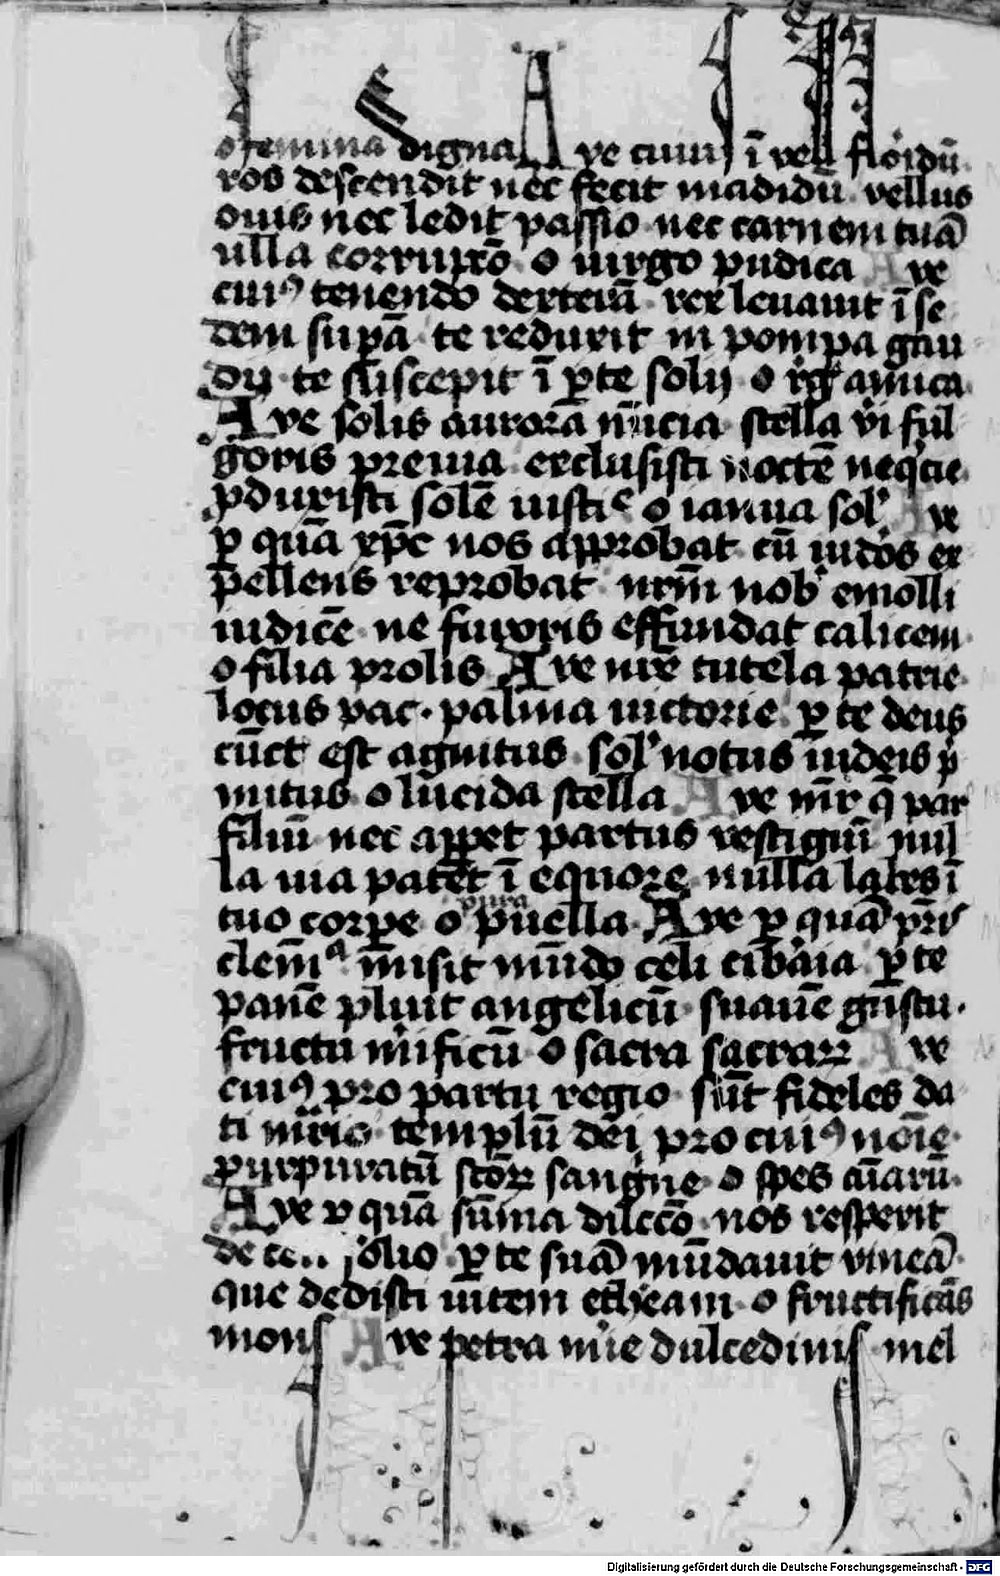 o femina digna Ave cuius ī vell floridū
ros descendit nec fecit madidū vellus
ouis nec ledit passio nec carnem tuā
ulla corrupco o uirgo pudica Ave
cui9 tenendo dexterā rex leuauit ī se
dem sup̄ā te reduxit in pompa gau
dij te suscepit ī p̄te solij o amica
Ave solis aurorā nūcia stella vi ful
goris preuia exclusisti noctē neqcie
pduxisti solē iusti o ianua sol Ave
p quā xpc nos approbat cū iudos ex
pellens reprobat nrm̄ nob emolli
iudicē ne furoris effundat calicem
o filia prolis Ave mr̄e tutela patrie
locus pac palma uictorie p te deus
cūct est agnitus sol notus iudeis p
mitus o lucida stella Ave mr̄ q̄ par
filiū nec appet partus vestigiū nul
la uia patēt ī equore nulla labes ī
tuo corpe o pura puella Ave p quā pr̄is
clem̄a misit mūdo celi cibaia p te
panē pluit angelicū suauē gustu
fructu mificū o sacra sacraꝝ Ave
cui9 pro partu regio sūt fideles da
ti nr̄is templū dei pro cui9 noīe
purpuratū scōꝝ sangne o spes aīarū
Ave p quā sūma dilcc̄o nos respexit
de celi solio p te suā mūdauit vineā
que dedisti uitem etheam o fructificās
mons Ave petra mire dulcedinis mel
Digitalisierung gefördert durch die Deutsche Forschungsgemeinschaft - DFG